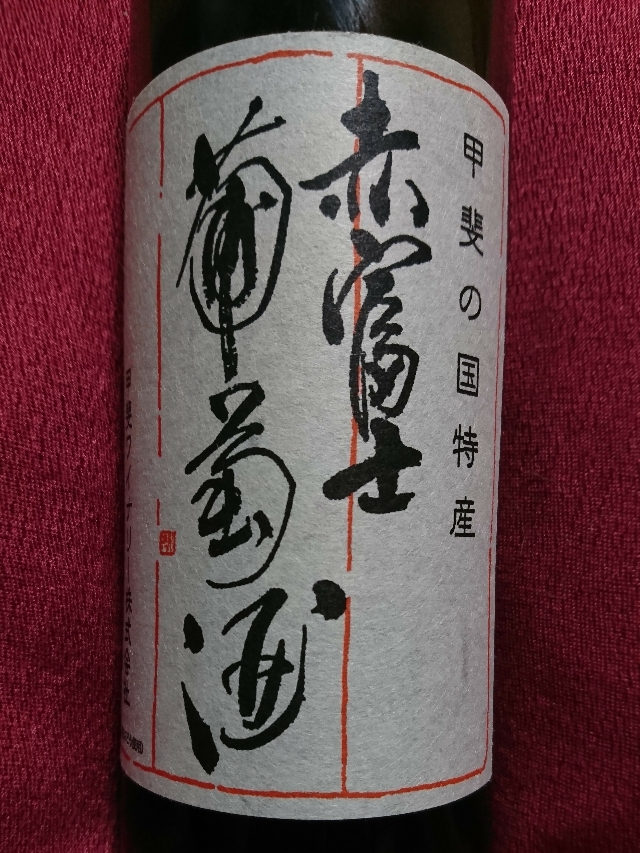 甲斐の国特産
赤富士
葡萄酒
甲斐ワイナリー株式会社